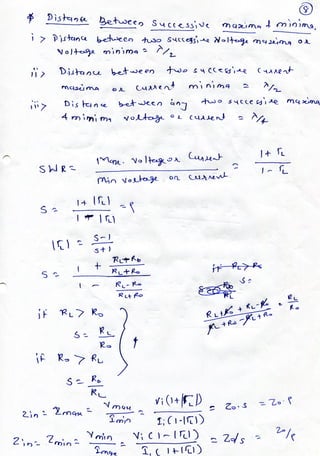 8
* Distance Between Successive maxima & minima.
i> Distance between two successive Voltage maxima or
Voltage minima = λ/2
ii> Distance between two successive current
maxima or current minima = λ/2
iii> Distance between any two successive maxima
& minima voltage or current = λ/4
SWR = Max. Voltage or Current / Min Voltage or Current = 1+ΓL / 1-ΓL
S = 1+|ΓL| / 1-|ΓL| = ρ
|Γ| = S-1 / S+1
S = 1 + RL-Ro/RL+Ro / 1 - RL-Ro/RL+Ro
if RL>Ro
S =
RL+Ro+RL-Ro / RL+Ro-RL+Ro = RL/Ro
if RL > Ro
S = RL/Ro
if Ro > RL
S = Ro/RL
Zin = Zmax = Vmax/Imin = Vi(1+|ΓL|) / Ii(1-|ΓL|) = Zo.S = Zo.ρ
Zin = Zmin = Vmin/Imax = Vi(1-|ΓL|) / Ii(1+|ΓL|) = Zo/S = Zo/ρ